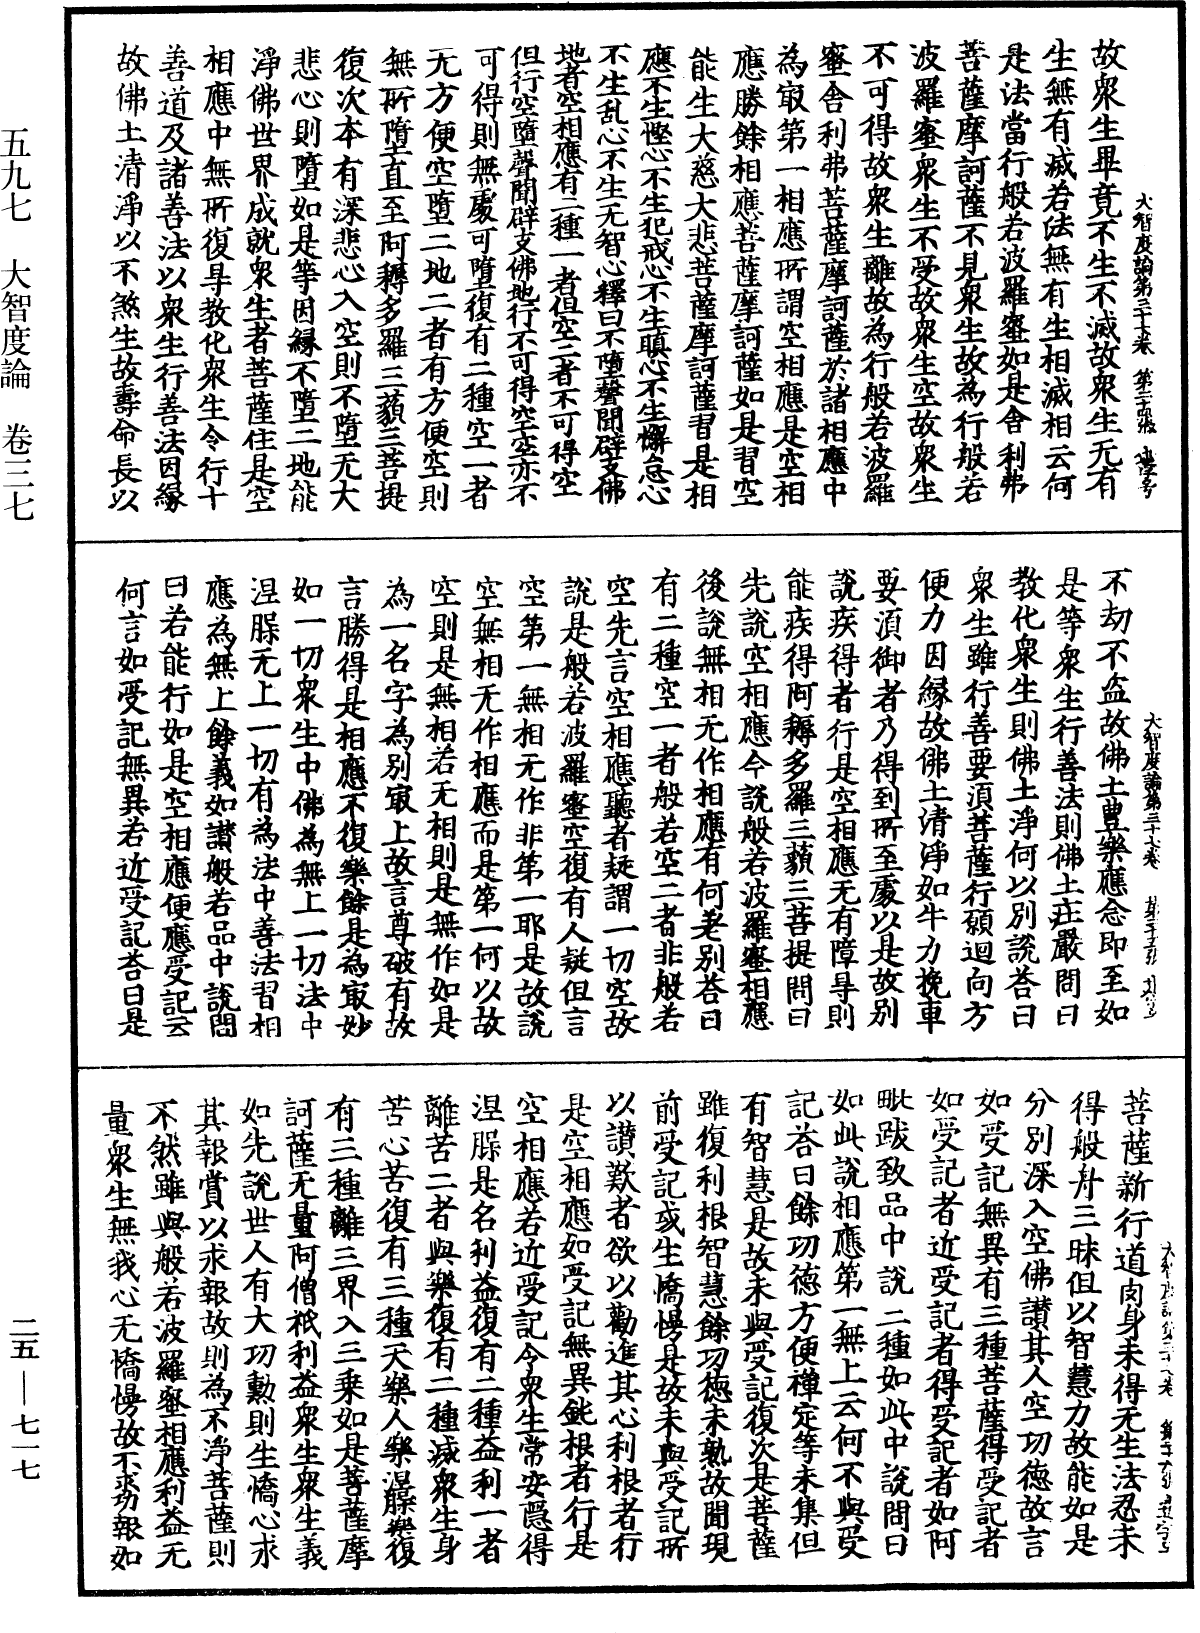 大智度論第三十七卷　第二十張　澄字号
故衆生畢竟不生不滅故衆生无有
生無有滅若法無有生相滅相云何
是法當行般若波羅蜜如是舍利弗
菩薩摩訶薩不見衆生故為行般若
波羅蜜衆生不受故衆生空故衆生
不可得故衆生離故為行般若波羅
蜜舍利弗菩薩摩訶薩於諸相應中
為冣第一相應所謂空相應是空相
應勝餘相應菩薩摩訶薩如是習空
能生大慈大悲菩薩摩訶薩習是相
應不生慳心不生犯戒心不生瞋心不生懈怠心
不生乱心不生无智心釋曰不墮聲聞辟支佛
地者空相應有二種一者但空二者不可得空
但行空墮聲聞辟支佛地行不可得空空亦不
可得則無處可墮復有二種空一者
无方便空墮二地二者有方便空則
無所墮直至阿耨多羅三藐三菩提
復次本有深悲心入空則不墮无大
悲心則墮如是等因緣不墮二地能
淨佛世界成就衆生者菩薩住是空
相應中無所復㝵教化衆生令行十
善道及諸善法以衆生行善法因緣
故佛土清淨以不煞生故壽命長以
大智度論第三十七卷
不劫不盗故佛土豊樂應念即至如
是等衆生行善法則佛土庄嚴問曰
教化衆生則佛土淨何以別說荅曰
衆生雖行善要湏菩薩行願迴向方
便力因緣故佛土清淨如牛力挽車
要湏御者乃得到所至處以是故別
說疾得者行是空相應无有障㝵則
能疾得阿耨多羅三藐三菩提問曰
先說空相應今說般若波羅蜜相應
後說無相无作相應有何差別荅曰
有二種空一者般若空二者非般若
空先言空相應聽者疑謂一切空故
說是般若波羅蜜空復有人疑但言
空第一無相无作非第一耶是故說
空無相无作相應而是第一何以故
空則是無相若无相則是無作如是
為一名字為別冣上故言尊破有故
言勝得是相應不復樂餘是為冣妙
如一切衆生中佛為無上一切法中
涅脲无上一切有為法中善法習相
應為無上餘義如讃般若品中說問
曰若能行如是空相應便應受記云
何言如受記無異若近受記荅曰是
菩薩新行道肉身未得无生法忍未
得般舟三昧但以智慧力故能如是
分別深入空佛讃其人空功德故言
如受記無異有三種菩薩得受記者
如受記者近受記者得受記者如阿
毗跋致品中說二種如此中說問曰
如此說相應第一無上云何不與受
記荅曰餘功德方便禅定等未集但
有智慧是故未與受記復次是菩薩
雖復利根智慧餘功德未熟故聞現
前受記或生憍慢是故未與受記所
以讃歎者欲以勸進其心利根者行
是空相應如受記無異鈍根者行是
空相應若近受記今衆生常安隱得
涅脲是名利益復有二種益利一者
離苦二者與樂復有二種滅衆生身
苦心苦復有三種天樂人樂涅脲樂復
有三種離三界入三乗如是菩薩摩
訶薩无量阿僧祇利益衆生衆生義
如先說世人有大功勳則生憍心求
其報賞以求報故則為不淨菩薩則
不然雖與般若波羅蜜相應利益无
量衆生無我心无憍慢故不求功報如
五九七　大智度論　卷三七
二五—七一七